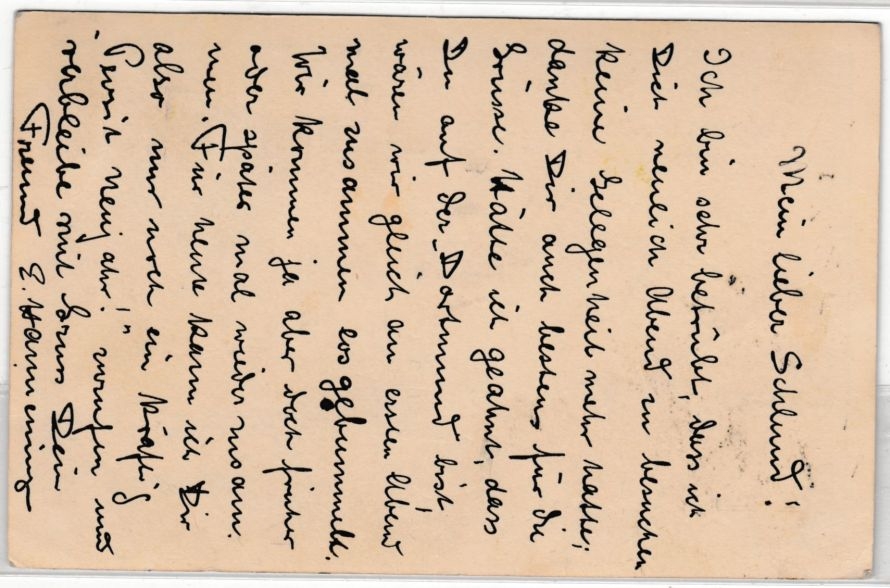 Mein lieber Schlund!
Ich bin sehr betrübt, dass ich
Dich neulich Abend zu besuchen
keine Gelegenheit mehr hatte;
danke Dir auch bestens für die
Grüsse. Hätte ich geahnt, dass
Du auf der „Dortmund" bist,
wären wir gleich am ersten Abend
mal zusammen losgebummelt.
Wir kommen ja aber doch früher
oder später mal wieder zusam-
men. Für heute kann ich Dir
also nur noch ein kräftig
"Prosit Neujahr!" zurufen und
verbleibe mit Gruss Dein
Freund E.